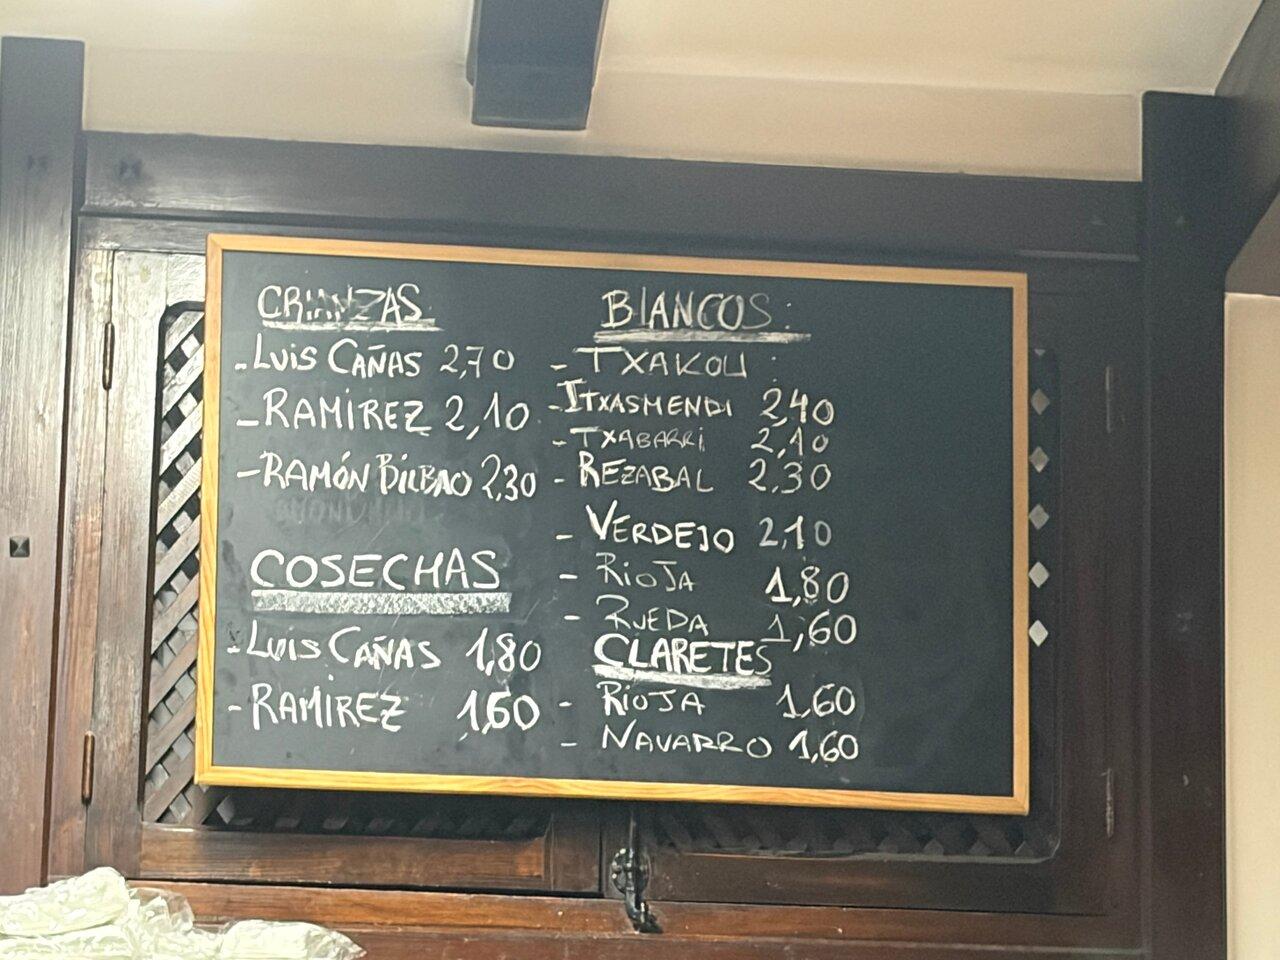 CRIANZAS
- LUIS CAÑAS 2,70
- RAMIREZ 2,10
- RAMÓN BILBAO 2,30
COSECHAS
- LUIS CAÑAS 1,80
- RAMIREZ 1,60
BLANCOS:
- TXAKOLI:
- ITXASMENDI 2,40
- TXABARRI 2,10
- REZABAL 2,30
- VERDEJO 2,10
- RIOJA 1,80
- RUEDA 1,60
CLARETES
- RIOJA 1,60
- NAVARRO 1,60